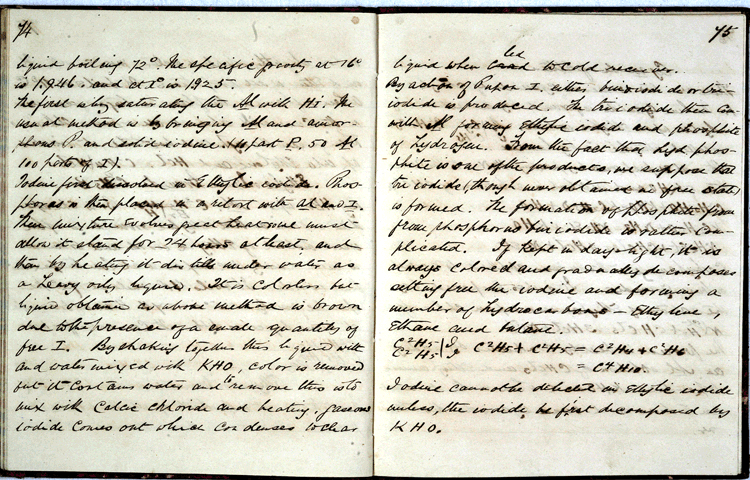 74
liquid boiling 72°. The specific gravity at 16°
is 1.946. and at 1° is 1925.
The first is by saturating the Al with HI. The
usual method is by bringing Al and amor-
phous P. and solid iodine. (10 part P. 50 Al
100 parts of I).
Iodine first dissolved in Ethylic
Phosphorus is then placed in a retort with al and I.
This mixture evolves great heat one must
allow it stand for 24 hours at least, and
then by heating it distills under water as
a heavy oily liquid. It is colorless but
liquid obtained as above method is brown
due to the presence of a small quantity of
free I. By shaking together this liquid with
and water mixed with KHO, color is removed
but it contains water and to remove this is to
mix with calcic chloride and heating, gaseous
iodide comes out which condenses to clear
75
liquid when led to cold receiver.
By action of P upon I. either biniodide or tri-
iodide is produced. The tri iodide then
with Al forming Ethylic iodide and phosphite
of hydrogen. From the fact that hyd phos-
phite is one of the products, we suppose that
tri iodide, though never obtained in free state
is formed. The formation of phosphite from
from phosphorus tri iodide is rather com-
plicated. If kept in day-light, it is
always colored and gradually decomposes
setting free the iodine and forming a
number of hydrocarbons – Ethylene,
Ethane and butane.
C²H5 } I
C²H5 } I C²H5 + C²H5 = C²H4 + C²H6
= C⁴H10.
Iodine cannot be detected in Ethylic iodide
unless, the iodide be first decomposed by
KHO.